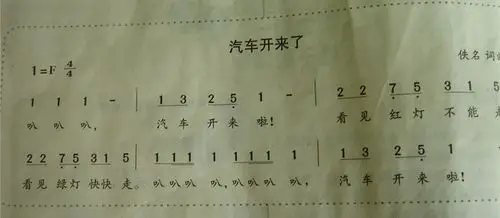 汽车开来了
1=F 4/4
佚名 词
1 1 1 - | 1 3 2 5 1 - | 2 2 7 5 3 1 5
叭 叭 叭, 汽 车 开 来 啦! 看 见 红 灯 不 能
2 2 7 5 3 1 5 | 1 1 1 1 1 1 1 1 | 1 3 2 5 1 -
看 见 绿 灯 快 快 走。 叭 叭 叭 叭, 叭 叭 叭 叭, 汽 车 开 来 啦!